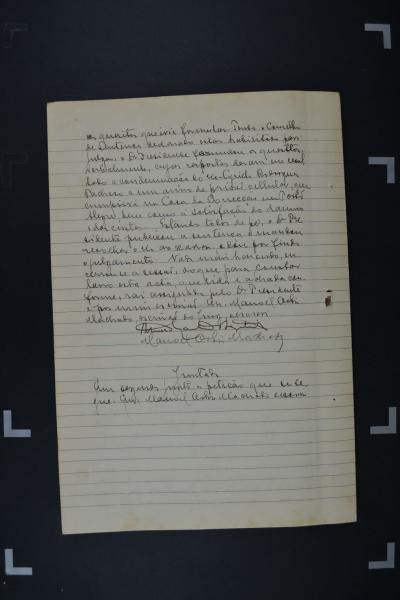 os quesitos que iria formular. Tendo o Conselho
de Sentença declarado estar habilitado para
julgar, o Dr. Presidente formulou os quesitos,
verbalmente, cujas respostas deram em resul
tado a condemnação do réo Cyrillo Rodrigues
a um anno de prisão cellular, que
cumprirá na Casa de Correcção em Porto
Alegre, bem como a satisfação do damno
e das custas. Estando todos de pé, o Dr. Pre
sidente a sentença e mandou
recolher o réo ao xadrez, e deu por findo
o julgamento. Nada mais havendo, en
cerrou-se a sessão, do que para constar
lavro esta acta, que lida e achada con
forme, vai assignada pelo Dr. Presidente
e por mim escrivão. Eu, Manoel
Machado, escrivão do Jury, escrevi
Manoel Machado
Juntada
Em seguida junto a petição que se se
gue. Eu, Manoel Machado escrivão